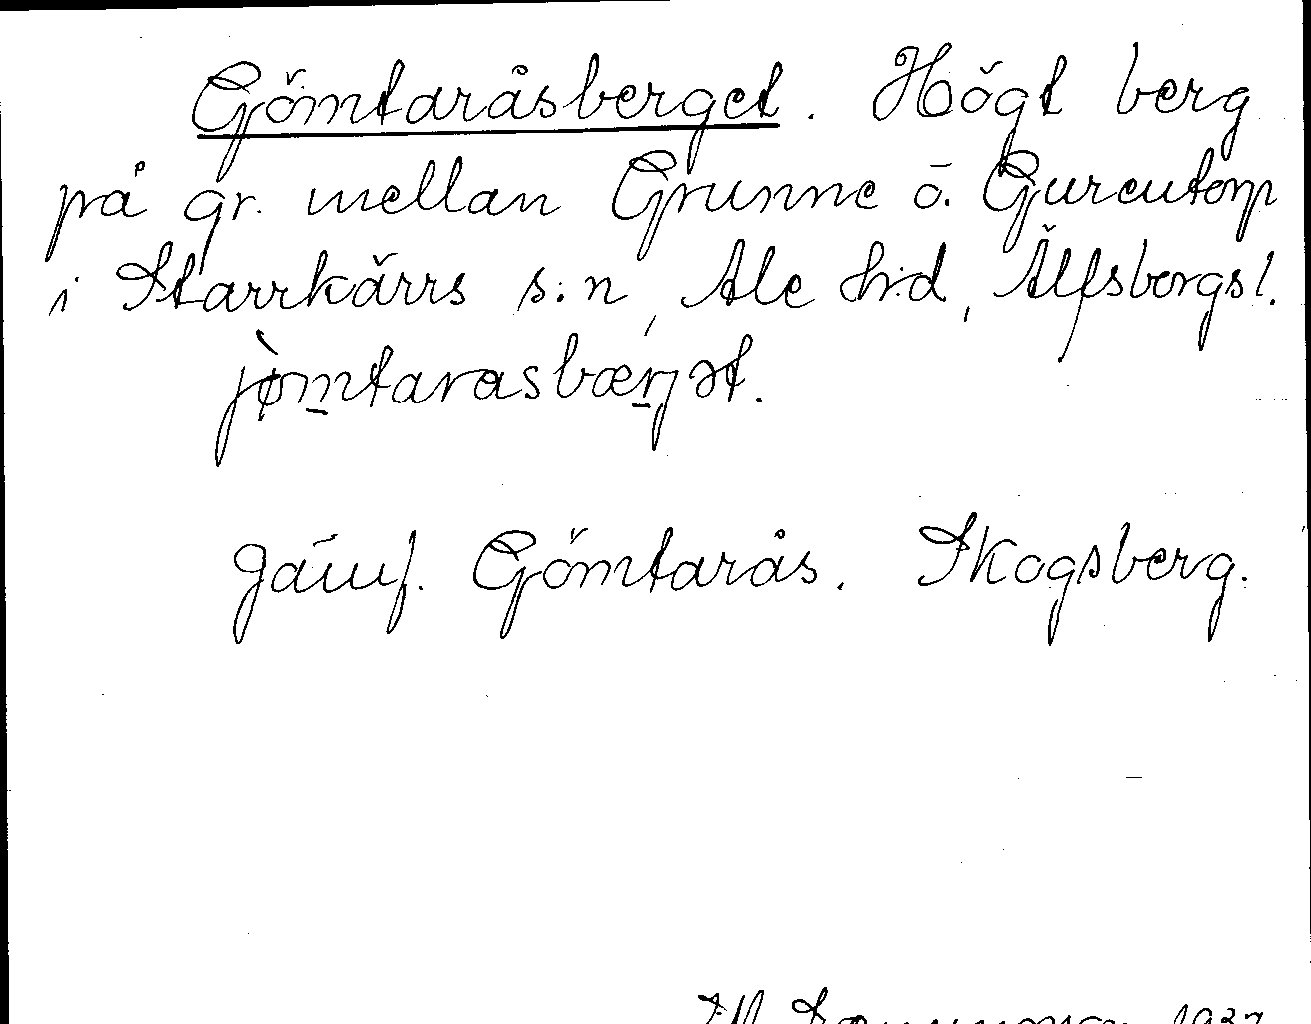 Gömtaråsberget. Högt berg
på gr. mellan Grunne o. Gureutorp
i Starrkärrs s:n, Ale h:d, Älfsborgs l.
jømtarasbærjət.
Jämf. Gömtarås. Skogsberg.
1937